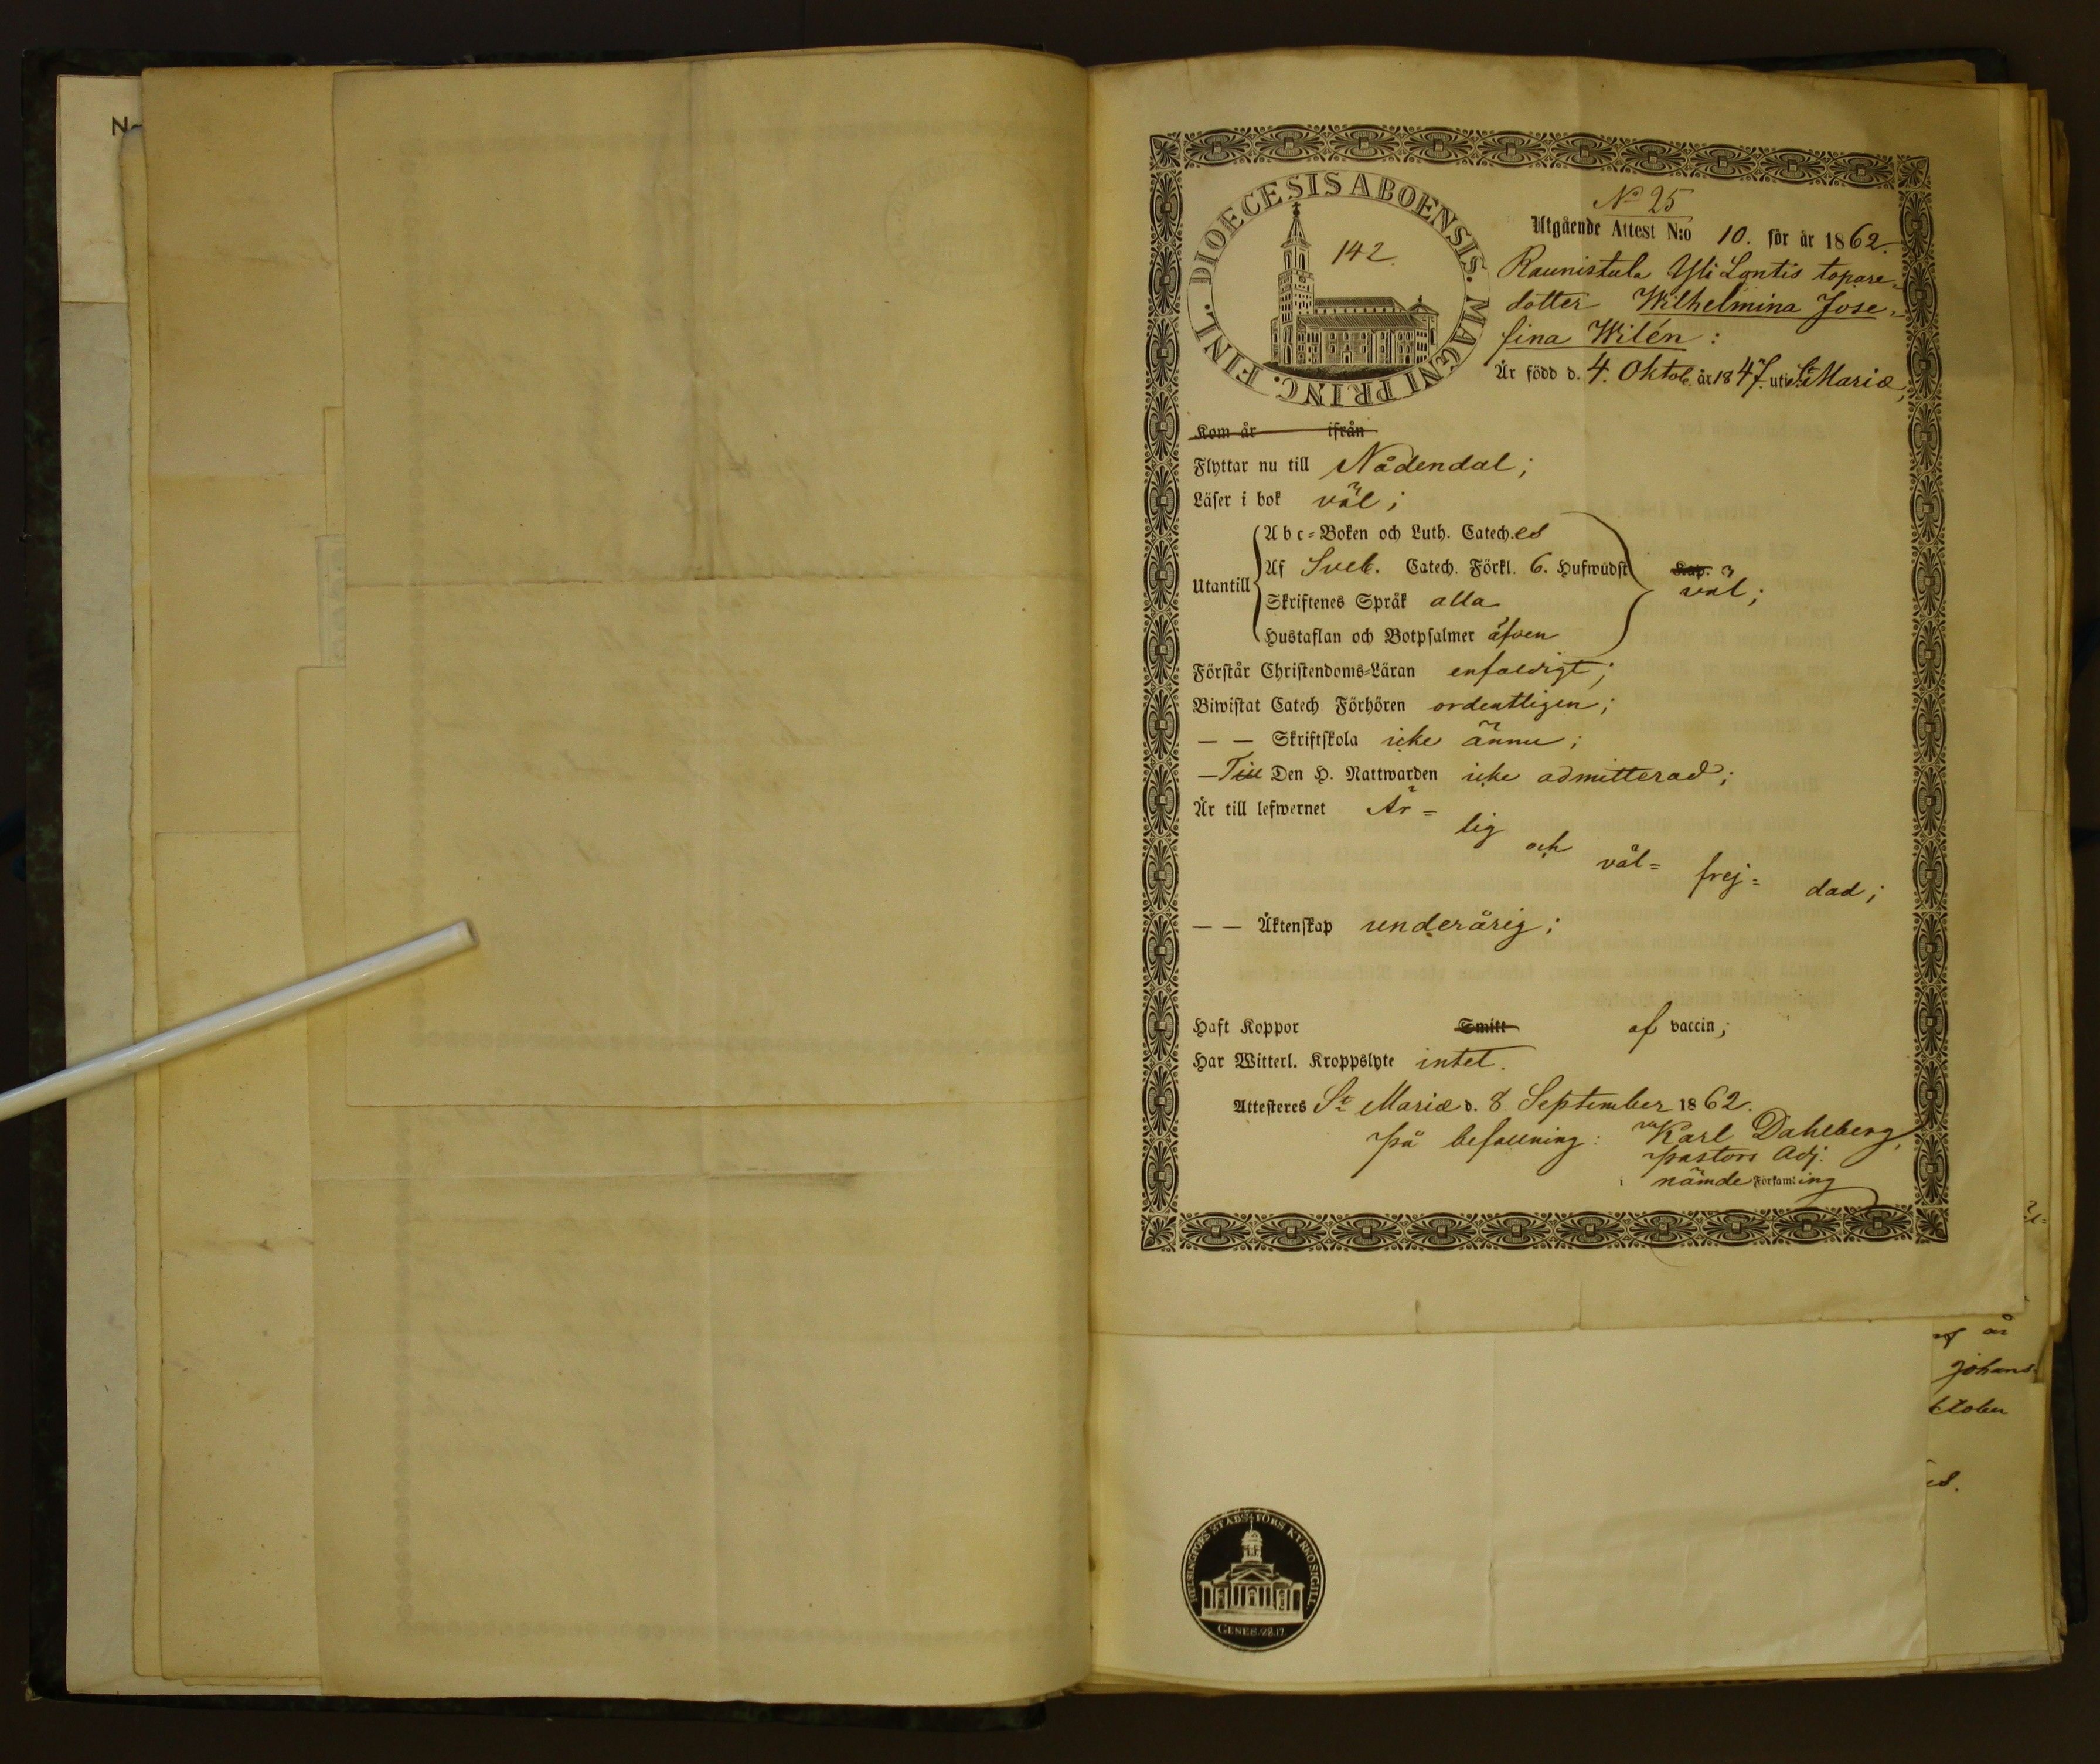 N
DIOECESIS ABOENSIS. MAGNI PRINC. FINL.
142.
No 25
Utgående Attest N:o 10. för år 1862.
Raunistula Yli Lontis topare-
dotter Wilhelmina Jose-
fina Wilén:
Är född d. 4. Oktob. år 1847. uti St Mariæ,
Kom år ifrån
Flyttar nu till Nådendal;
Läser i bok väl;
Abc-Boken och Luth. Catech. es
Utantill Af Sveb. Catech. Förkl. 6. Hufwudst Kap. väl;
Skriftenes Språk alla
Hustaflan och Botpsalmer äfven
Förstår Christendoms-Läran enfaldigt;
Biwistat Catech Förhören ordentligen;
— — Skriftskola icke ännu;
— Till Den H. Nattwarden icke admitterad;
Är till lefwernet Är=
lig och väl= frej= dad;
— — Äktenskap underårig;
Haft Koppor Smitt af vaccin;
Har Witterl. Kroppslyte intet.
Attesteres St Mariæ d. 8 September 1862.
på befallning: Karl Dahlberg,
pastors Adj.
i nämde Församling
af år
Johans-
ktober
HELSINGFORS STADS FÖRS KYRKO SIGILL.
GENES. 28.17